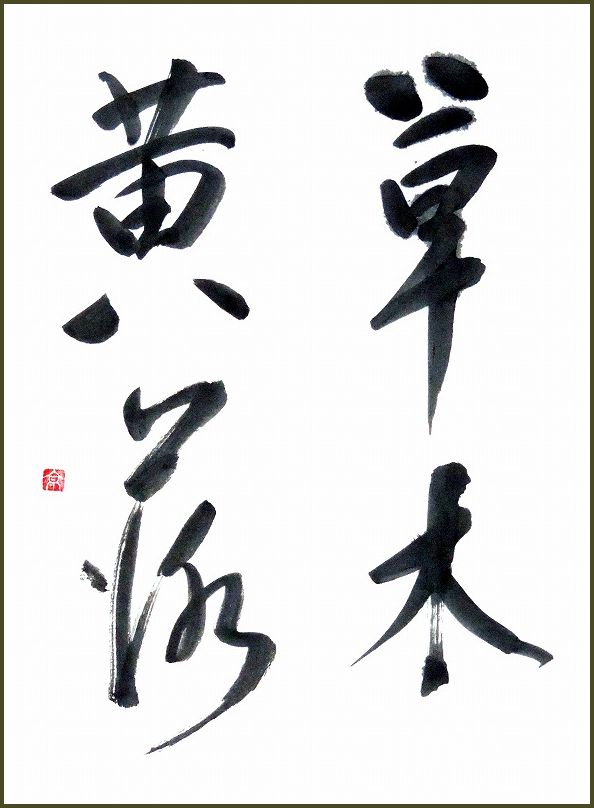 草木
黄落